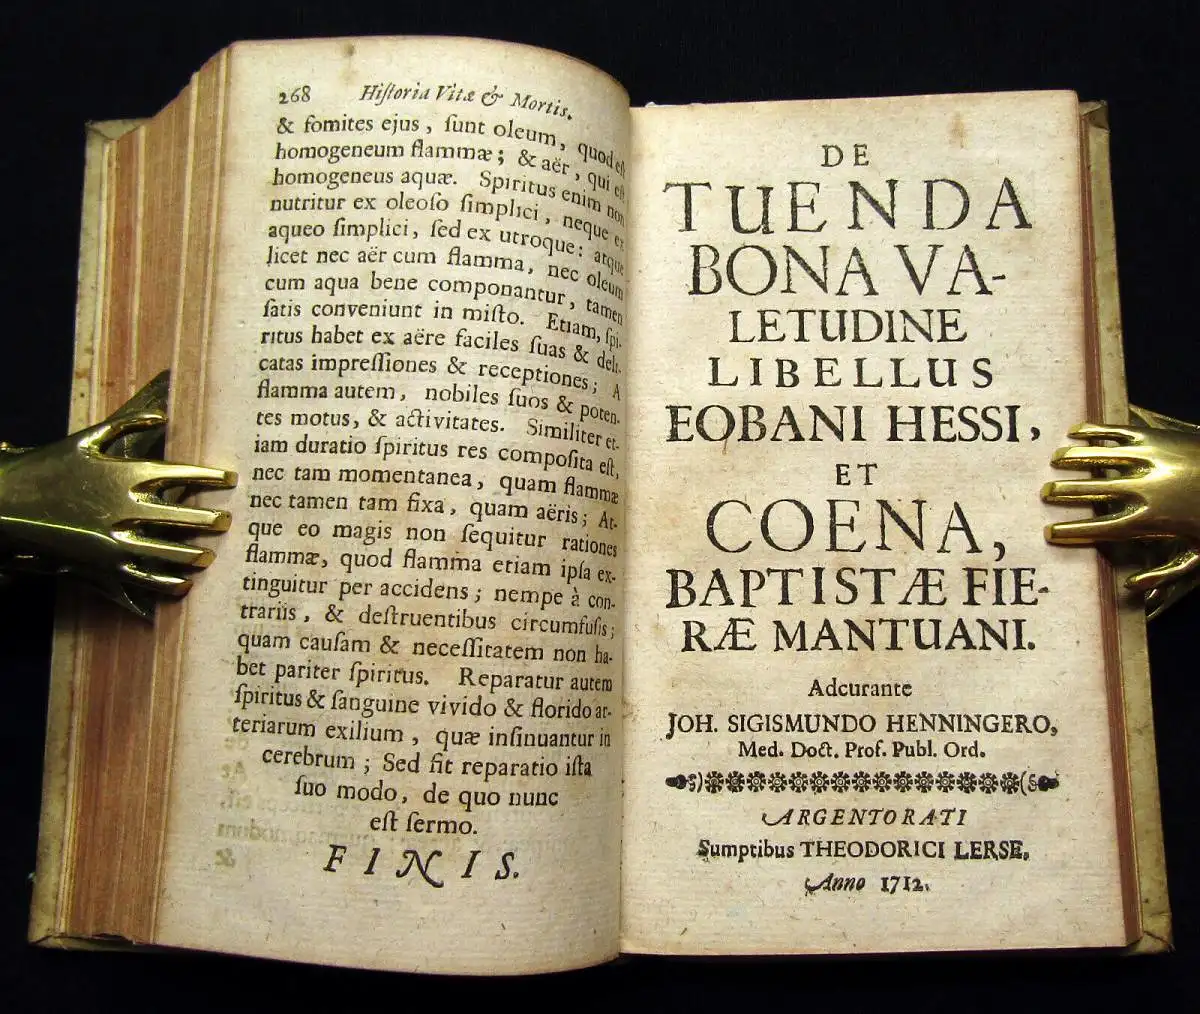 268 Hiſtoria Vitæ & Mortis.
& fomites ejus, ſunt oleum, quod eſt
homogeneum flammæ; & aër, qui eſt
homogeneus aquæ. Spiritus enim non
nutritur ex oleoſo ſimplici, neque ex
aqueo ſimplici, ſed ex utroque: atque
licet nec aër cum flamma, nec oleum
cum aqua bene componantur, tamen
ſatis conveniunt in miſto. Etiam, ſpi-
ritus habet ex aëre faciles ſuas & deli-
catas impreſſiones & receptiones; A
flamma autem, nobiles ſuos & poten-
tes motus, & activitates. Similiter et-
iam duratio ſpiritus res compoſita eſt,
nec tam momentanea, quam flammæ
nec tamen tam fixa, quam aëris; At-
que eo magis non ſequitur rationes
flammæ, quod flamma etiam ipſa ex-
tinguitur per accidens; nempe à con-
trariis, & deſtruentibus circumfuſis;
quam cauſam & neceſſitatem non ha-
bet pariter ſpiritus. Reparatur autem
ſpiritus & ſanguine vivido & florido ar-
teriarum exilium, quæ inſinuantur in
cerebrum; Sed fit reparatio iſta
ſuo modo, de quo nunc
eſt ſermo.
FINIS.
DE
TUENDA
BONA VA-
LETUDINE
LIBELLUS
EOBANI HESSI,
ET
COENA,
BAPTISTÆ FIE-
RÆ MANTUANI.
Adcurante
JOH. SIGISMUNDO HENNINGERO,
Med. Doct. Prof. Publ. Ord.
ARGENTORATI
Sumptibus THEODORICI LERSE,
Anno 1712.